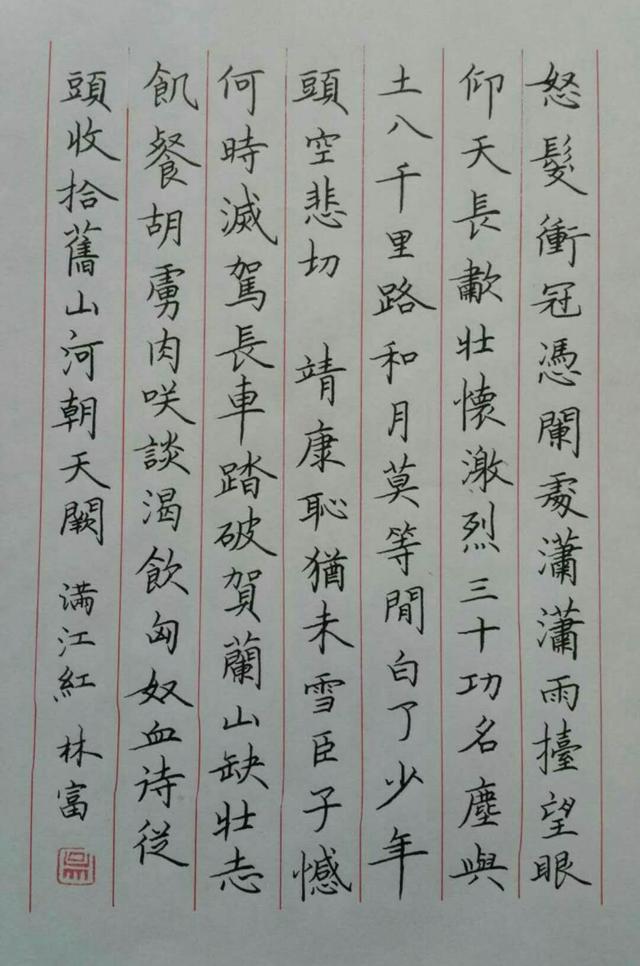 怒髮衝冠憑闌處瀟瀟雨擡望眼
仰天長歗壯懷激烈三十功名塵與
土八千里路和月莫等閒白了少年
頭空悲切 靖康恥猶未雪臣子憾
何時滅駕長車踏破賀蘭山缺壯志
飢餐胡虜肉咲談渴飲匈奴血待從
頭收拾舊山河朝天闕 满江紅 林富